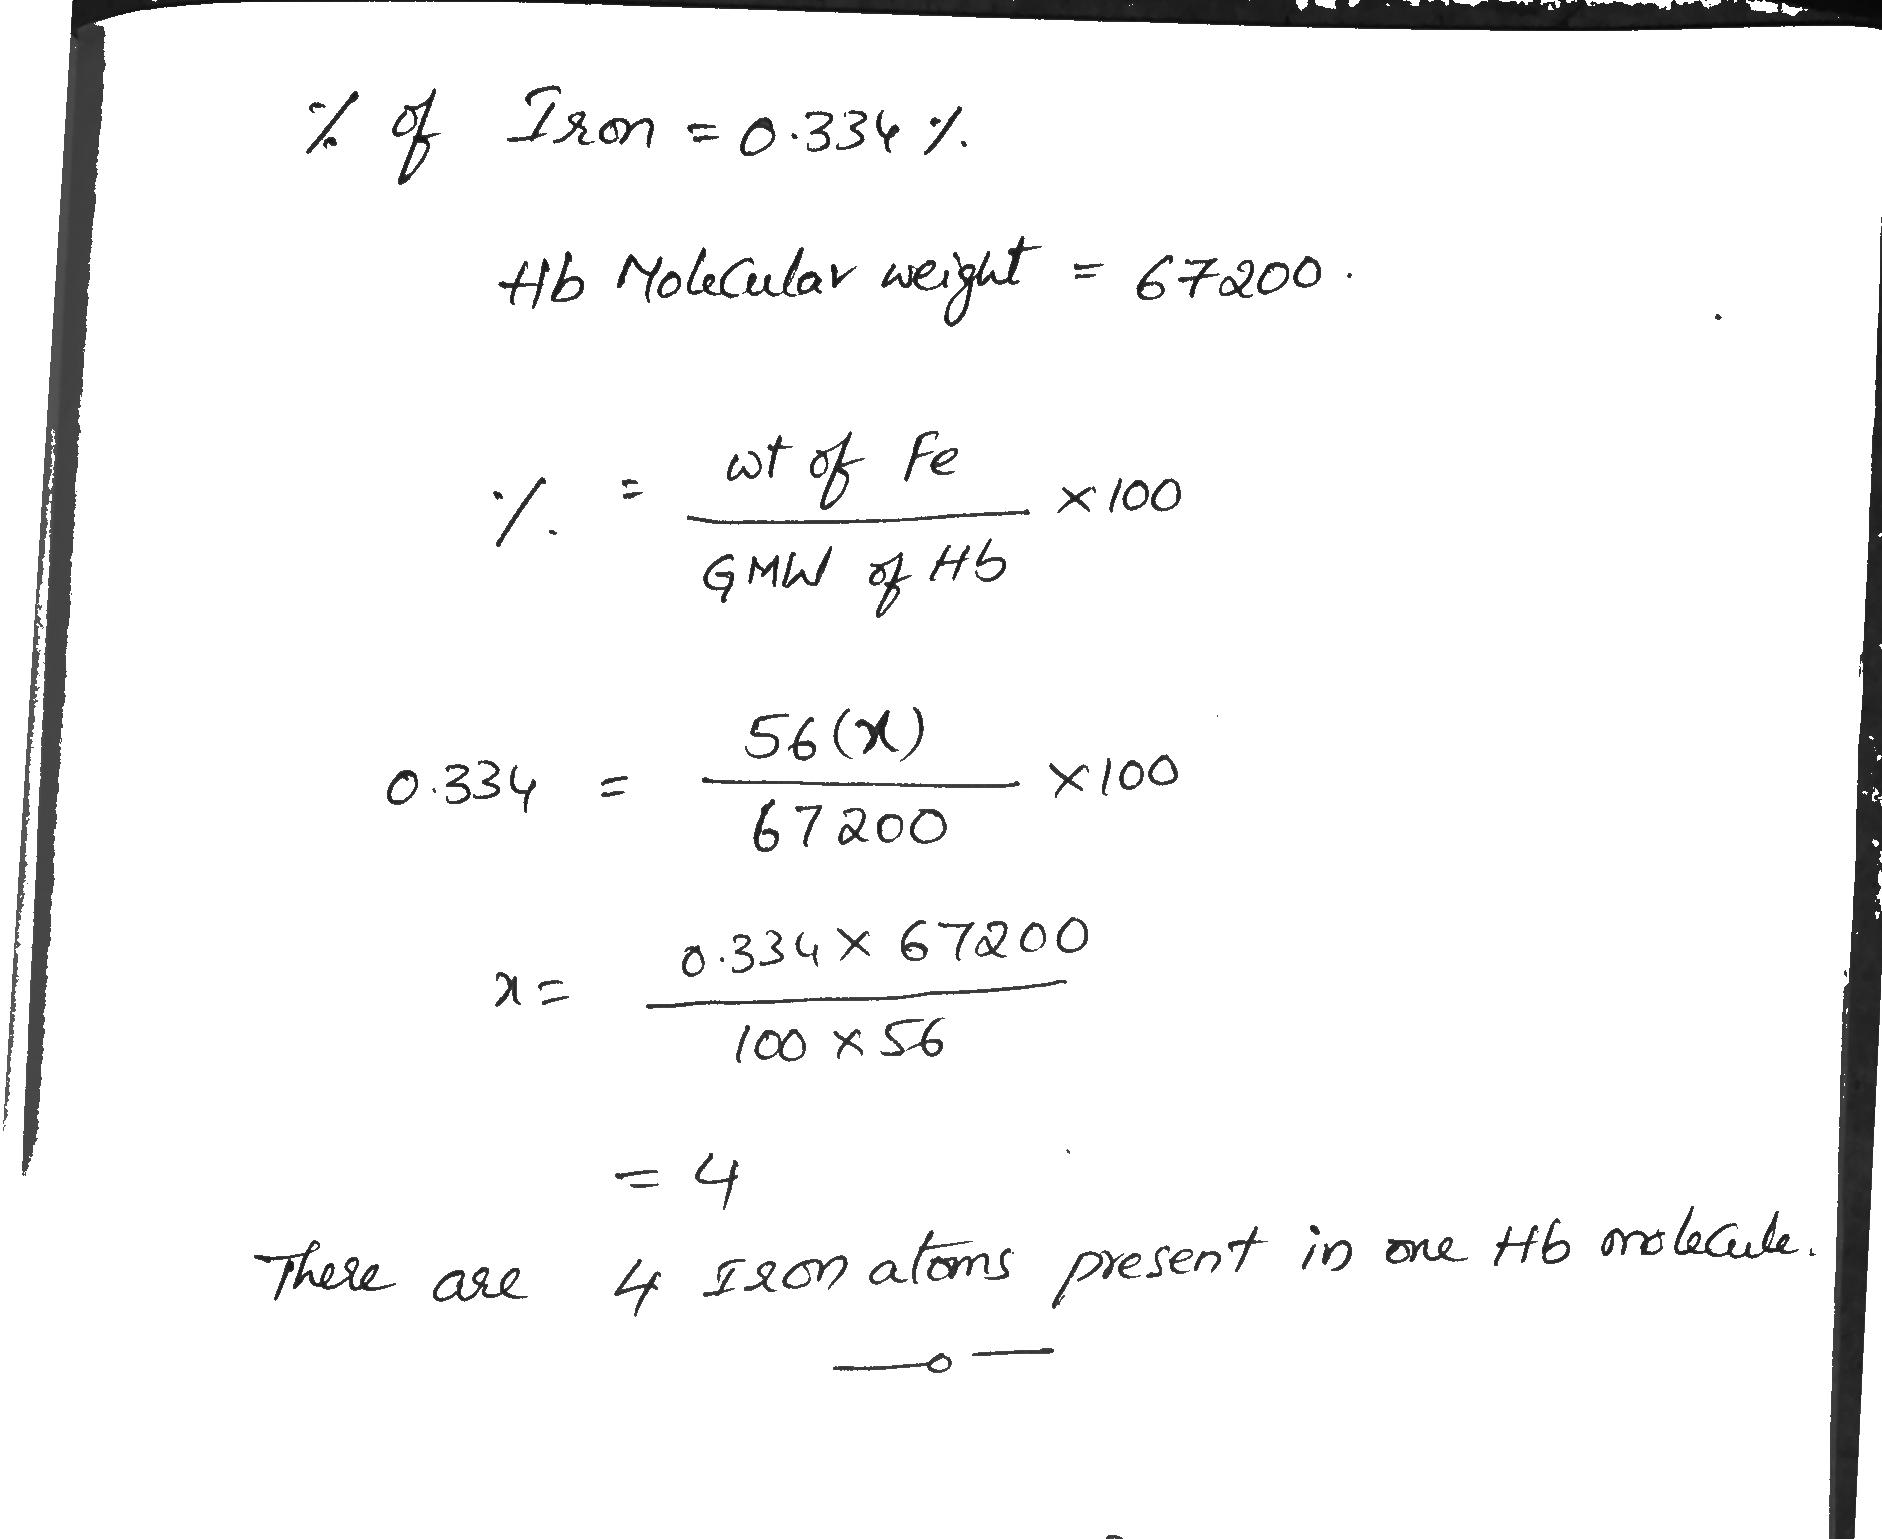 % of Iron = 0.334 %.
Hb Molecular weight = 67200.
% = wt of Fe / GMW of Hb × 100
0.334 = 56(x) / 67200 × 100
x = 0.334 × 67200 / 100 × 56
= 4
There are 4 Iron atoms present in one Hb molecule.